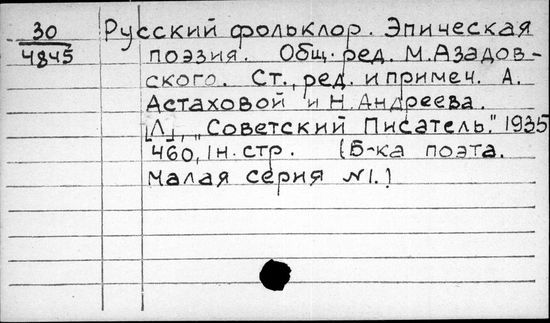 30 Русский фольклор. Эпическая
4845 поэзия. Общ. ред. М. Азадов-
ского. Ст., ред. и примеч. А.
Астаховой и Н. Андреева.
[Л], „Советский Писатель." 1935
460, 1 н. стр. (Б-ка поэта.
Малая серия №1.)